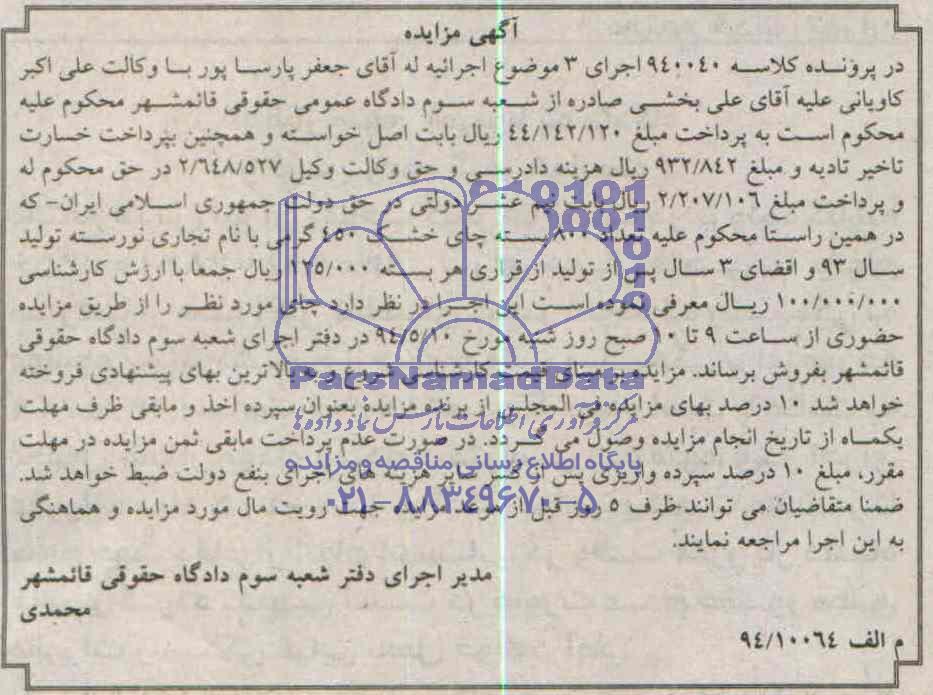 آگهی مزایده
در پرونده کلاسه ۹۴۰۰۴۰ اجرای ۳ موضوع اجرائیه له آقای جعفر پارسا پور با وکالت علی اکبر
کاویانی علیه آقای علی بخشی صادره از شعبه سوم دادگاه عمومی حقوقی قائمشهر محکوم علیه
محکوم است به پرداخت مبلغ ۴۴/۱۴۲/۱۲۰ ریال بابت اصل خواسته و همچنین بپرداخت خسارت
تاخیر تادیه و مبلغ ۹۳۲/۸۴۲ ریال هزینه دادرسی و حق وکالت وکیل ۲/۶۴۸/۵۲۷ در حق محکوم له
و پرداخت مبلغ ۲/۲۰۷/۱۰۶ ریال بابت نیم عشر دولتی در حق دولت جمهوری اسلامی ایران- که
در همین راستا محکوم علیه تعداد ۸۰۰ بسته چای خشک ۴۵۰ گرمی با نام تجاری نورسته تولید
سال ۹۳ و اقضای ۳ سال پس از تولید از قراری هر بسته ۱۲۵/۰۰۰ ریال جمعا با ارزش کارشناسی
۱۰۰/۰۰۰/۰۰۰ ریال معرفی نموده است این اجرا در نظر دارد چای مورد نظر را از طریق مزایده
حضوری از ساعت ۹ تا ۱۰ صبح روز شنبه مورخ ۹۴/۵/۱۰ در دفتر اجرای شعبه سوم دادگاه حقوقی
قائمشهر بفروش برساند. مزایده بر مبنای قیمت کارشناسی شروع و به بالاترین بهای پیشنهادی فروخته
خواهد شد ۱۰ درصد بهای مزایده فی المجلس از برنده مزایده بعنوان سپرده اخذ و مابقی ظرف مهلت
یکماه از تاریخ انجام مزایده وصول می گردد. در صورت عدم پرداخت مابقی ثمن مزایده در مهلت
مقرر، مبلغ ۱۰ درصد سپرده واریزی پس از کسر سایر هزینه های اجرای بنفع دولت ضبط خواهد شد.
ضمنا متقاضیان می توانند ظرف ۵ روز قبل از موعد مزایده جهت رویت مال مورد مزایده و هماهنگی
به این اجرا مراجعه نمایند.
مدیر اجرای دفتر شعبه سوم دادگاه حقوقی قائمشهر
محمدی
م الف ۹۴/۱۰۰۶۴
ParsNamadData
مرکز فرآوری اطلاعات پارس نماد داده ها
پایگاه اطلاع رسانی مناقصه و مزایده
۰۲۱-۸۸۳۴۹۶۷۰-۵